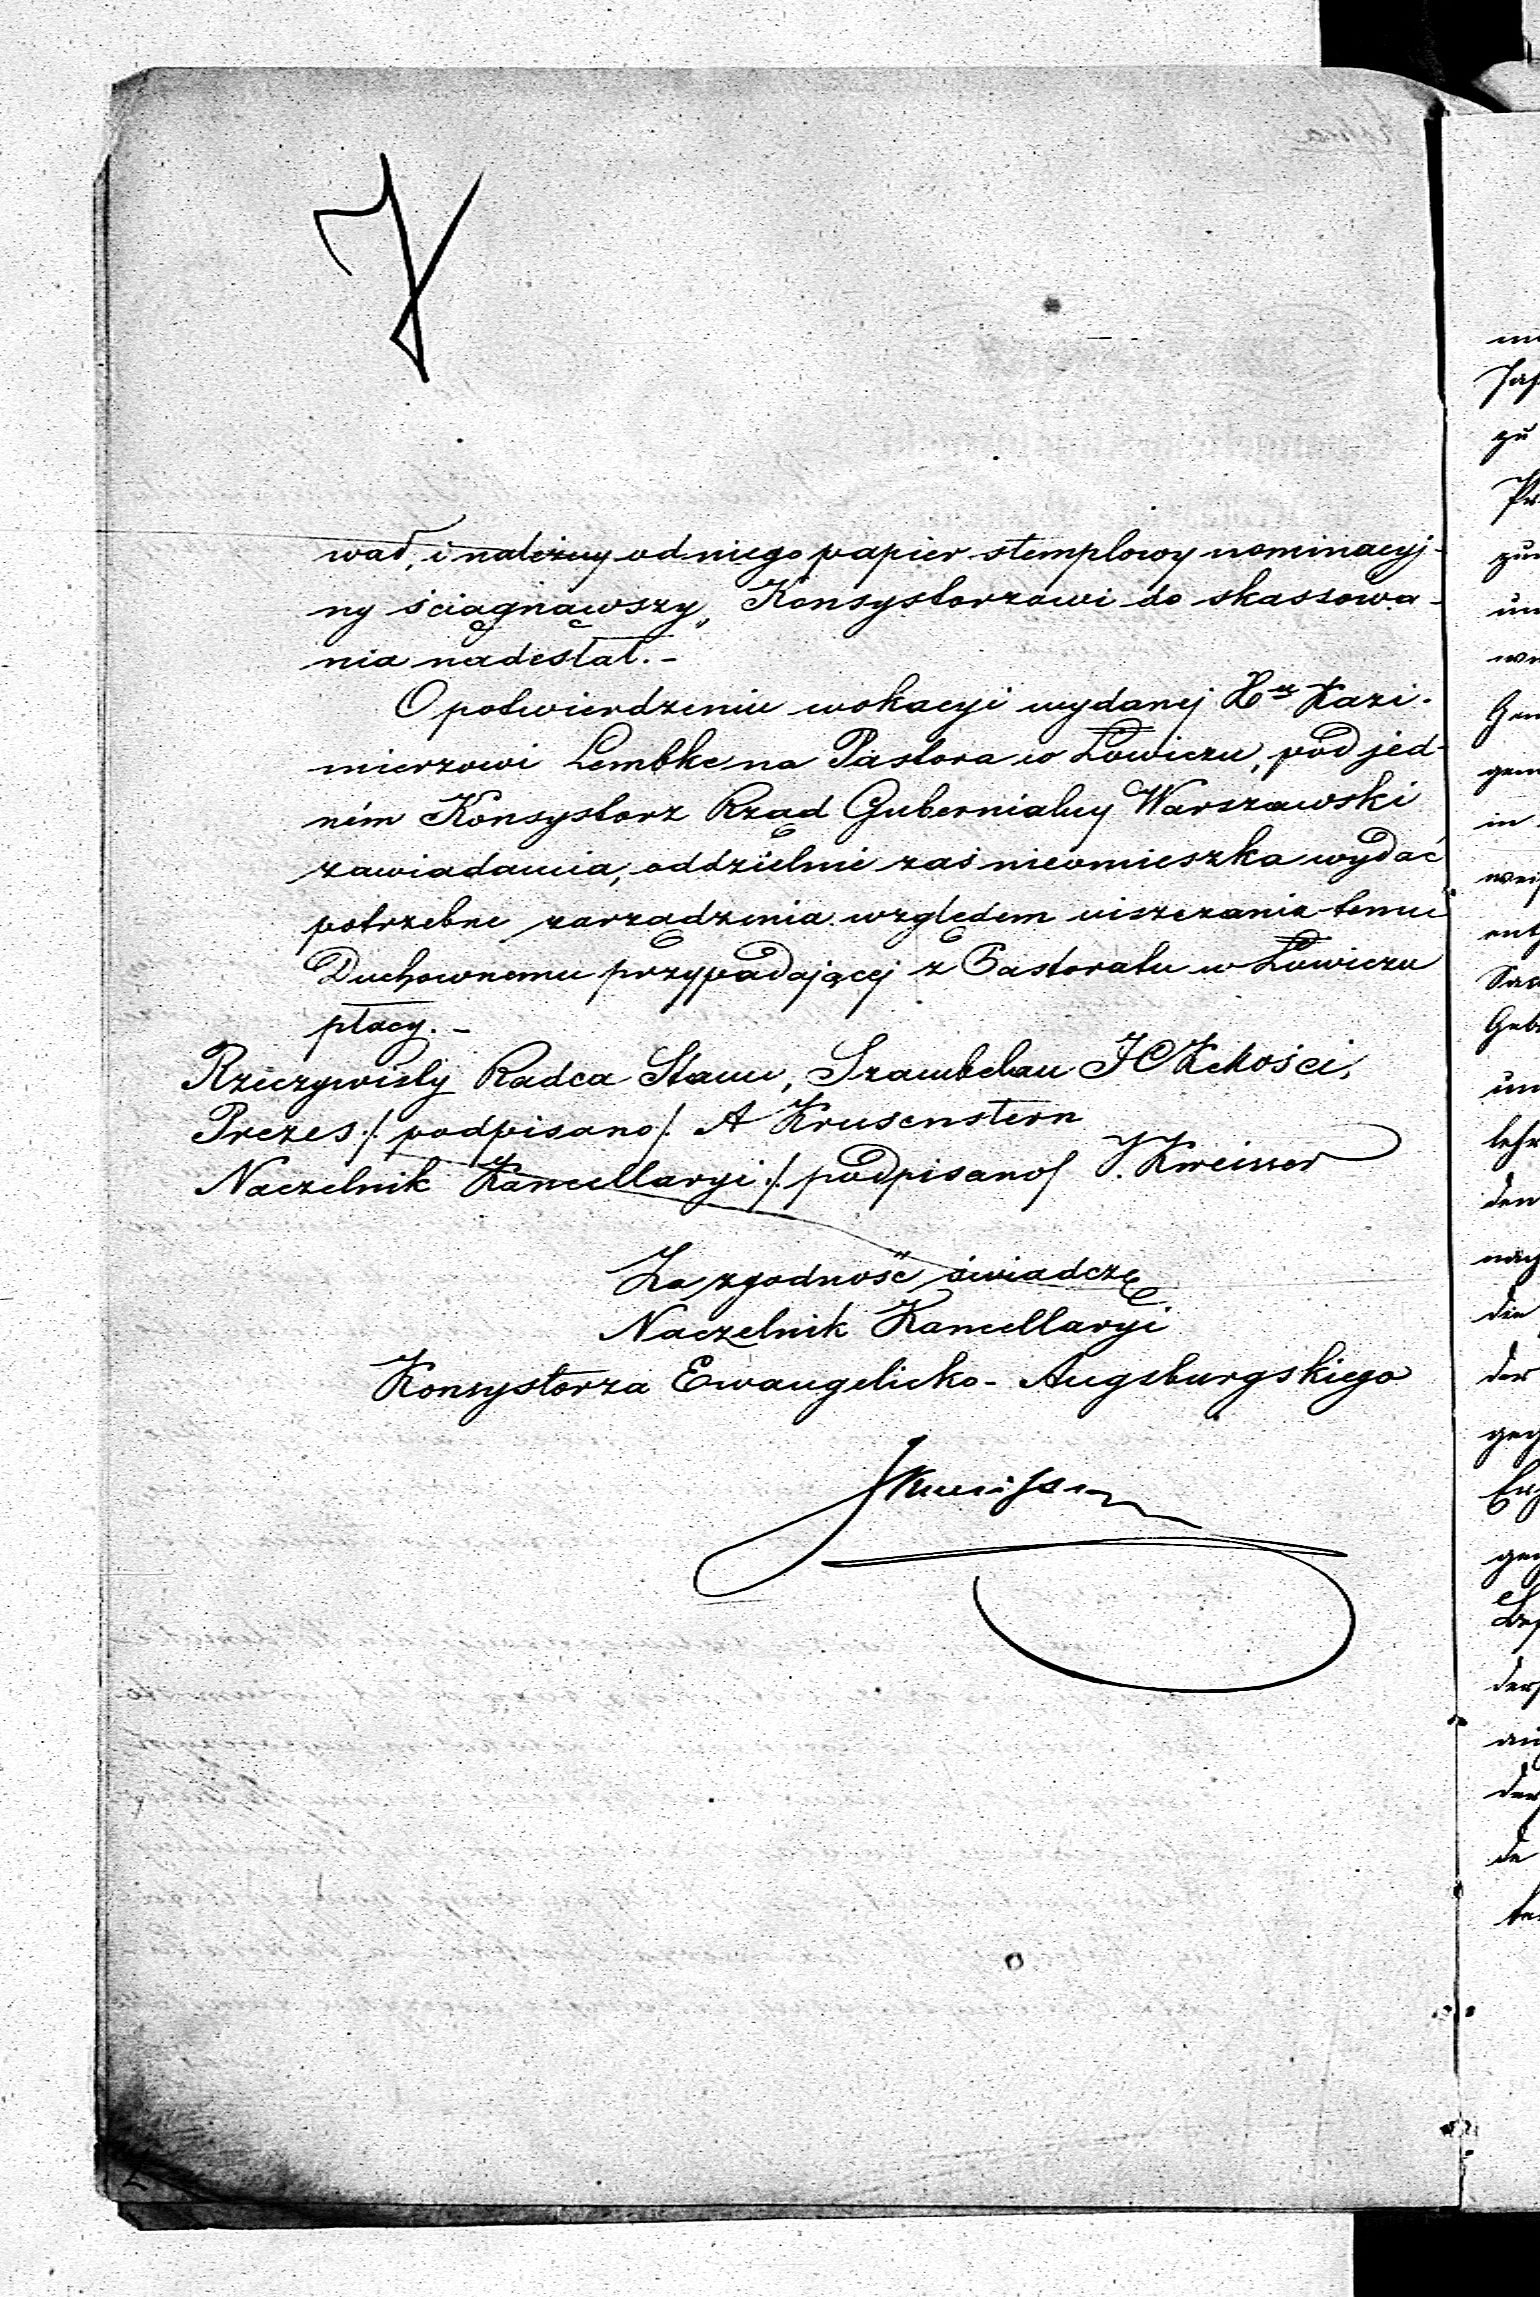 wał, i należny od niego papier stemplowy nominacyj-
ny ściągnąwszy, Konsystorzowi do skassowa-
nia nadesłał.-
O potwierdzeniu wokacyi wydanej Xu Kazi-
mierzowi Lembke na Pastora w Łowiczu, pod jed-
ném Konsystorz Rząd Gubernialny Warszawski
zawiadamia, oddzielnie zaś nieomieszka wydać
potrzebne zarządzenia względem uiszczania temu
Duchownemu przypadającej z Pastoratu w Łowiczu
płacy.-
Rzeczywisty Radca Stanu, Szambelan JCKMości,
Prezes /. podpisano /. A Krusenstern
Naczelnik Kancellaryi /. podpisano / J. Kweisser
Za zgodność świadczę
Naczelnik Kancellaryi
Konsystorza Ewangelicko-Augsburgskiego